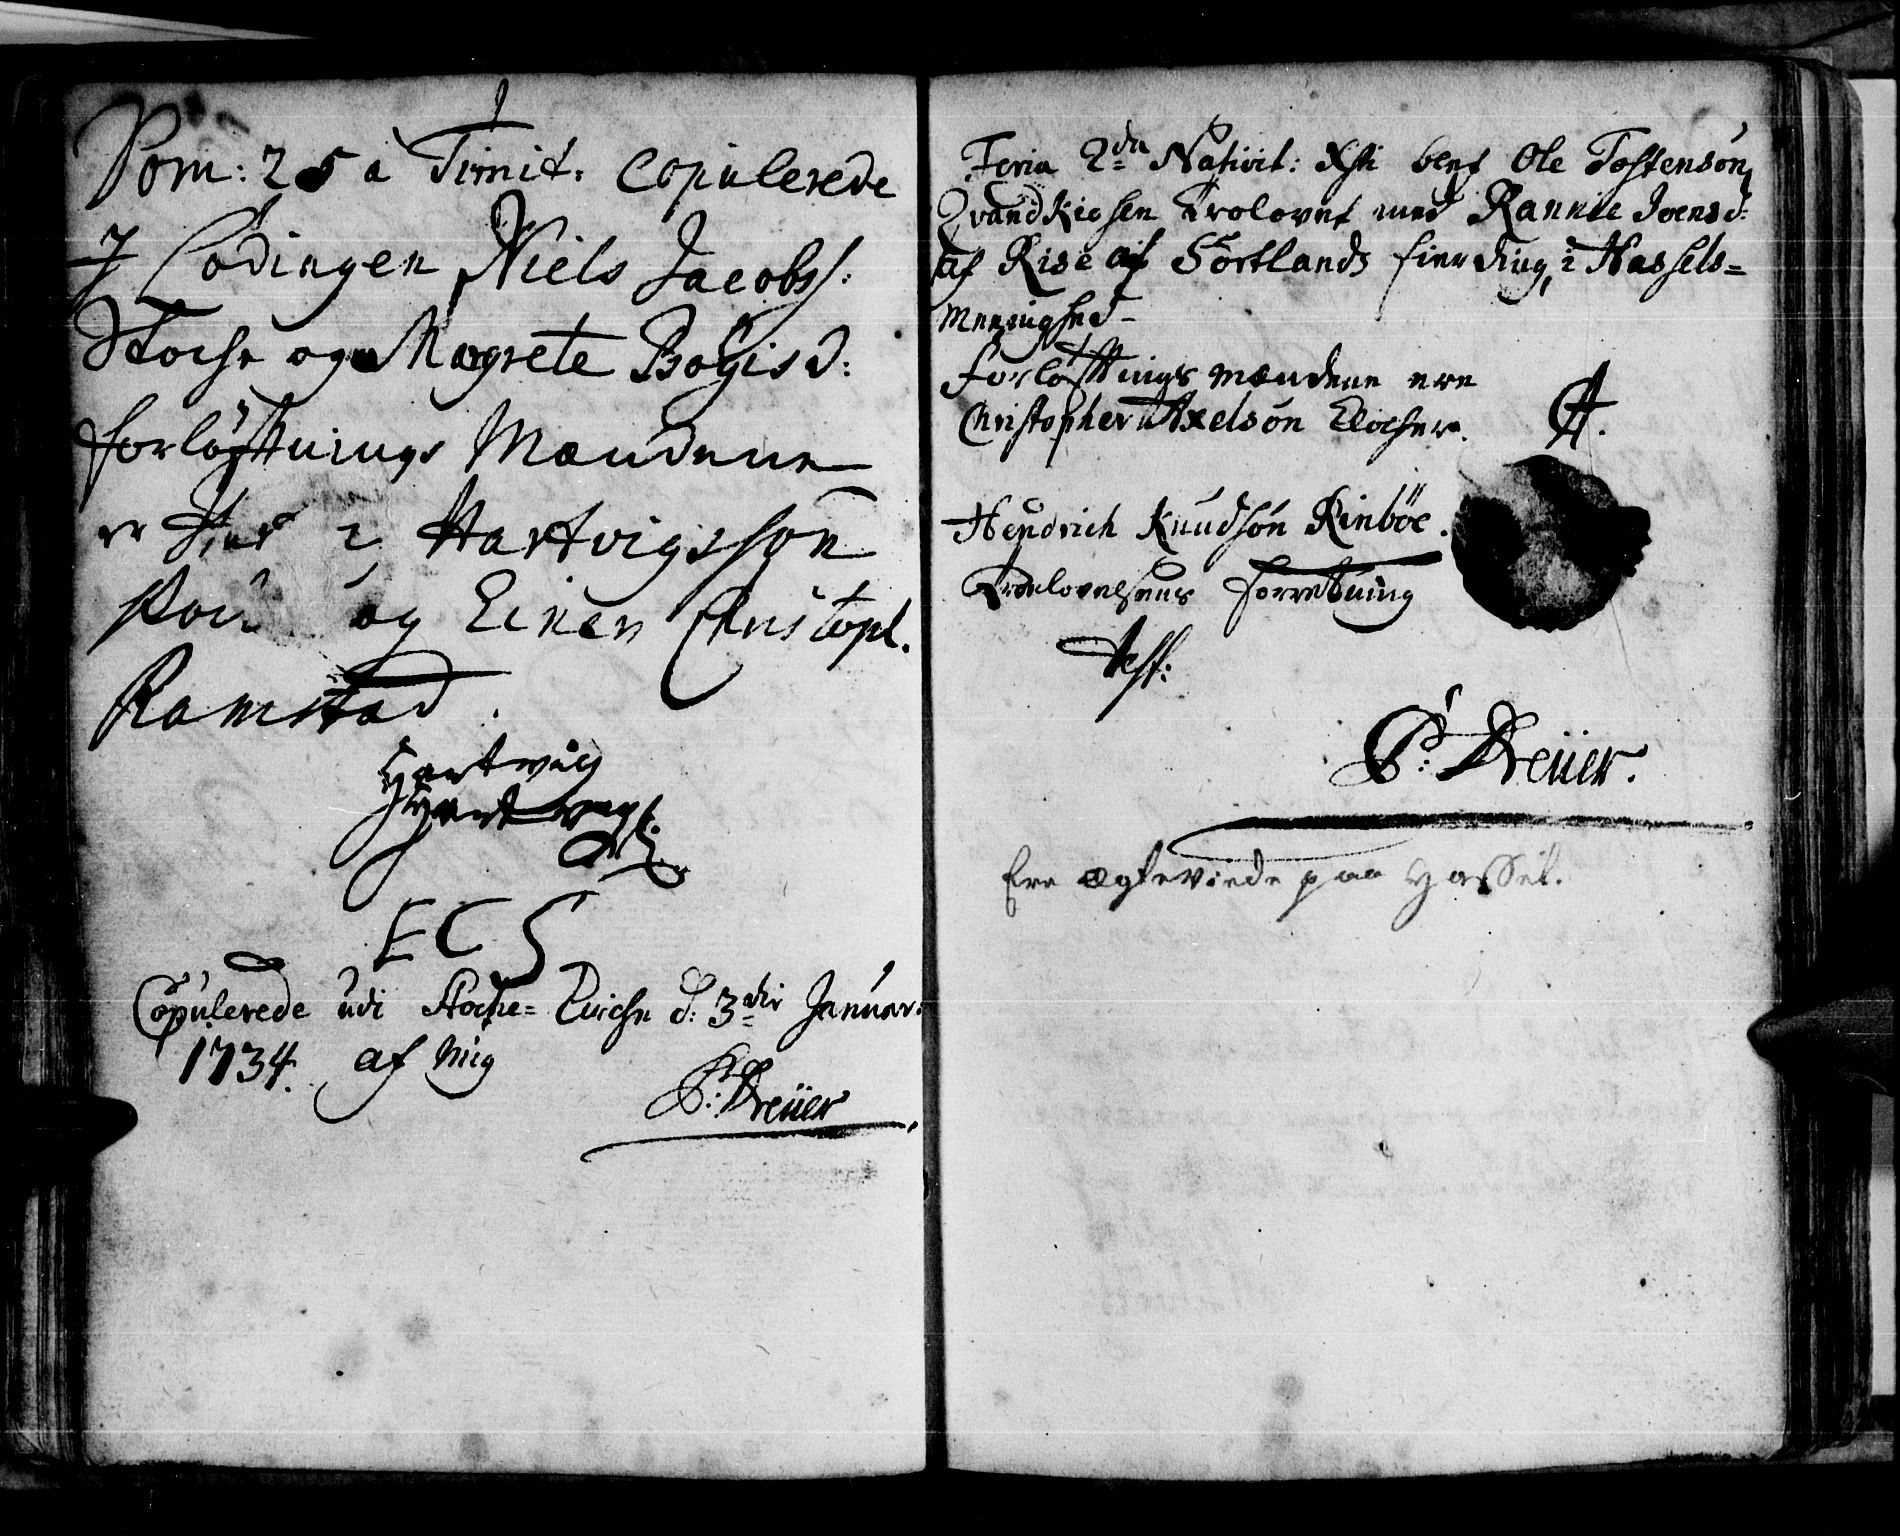 Dom: 25 a Trinit: Copulerede
I Lødingen Niels Jacobss:
Stoche og Magrete Bogisd:
forløftnings Mændene
er Hartvigsson
og Einer Christoph.
Ramstad.
Hartvig
Hartvigs.
E C S
Copulerede udi Stoche= Kirche d: 3die Januar:
1734. af mig
P: Dreüer
Feria 2da Nativit: Xsti blef Ole Tostensøn
Qvandkiosen Trolovet med Rannie Joensd:
af Rise af Sortlands fierding i Hassels=
Meenighed-
forløftnings mændene ere
Christopher Axelsøn Klocker. CA.
Hendrich Knudsøn Rinbøe.
Trolovelsens forretning
Test:
P: Dreüer.
Ere ægteviede paa Hassel.